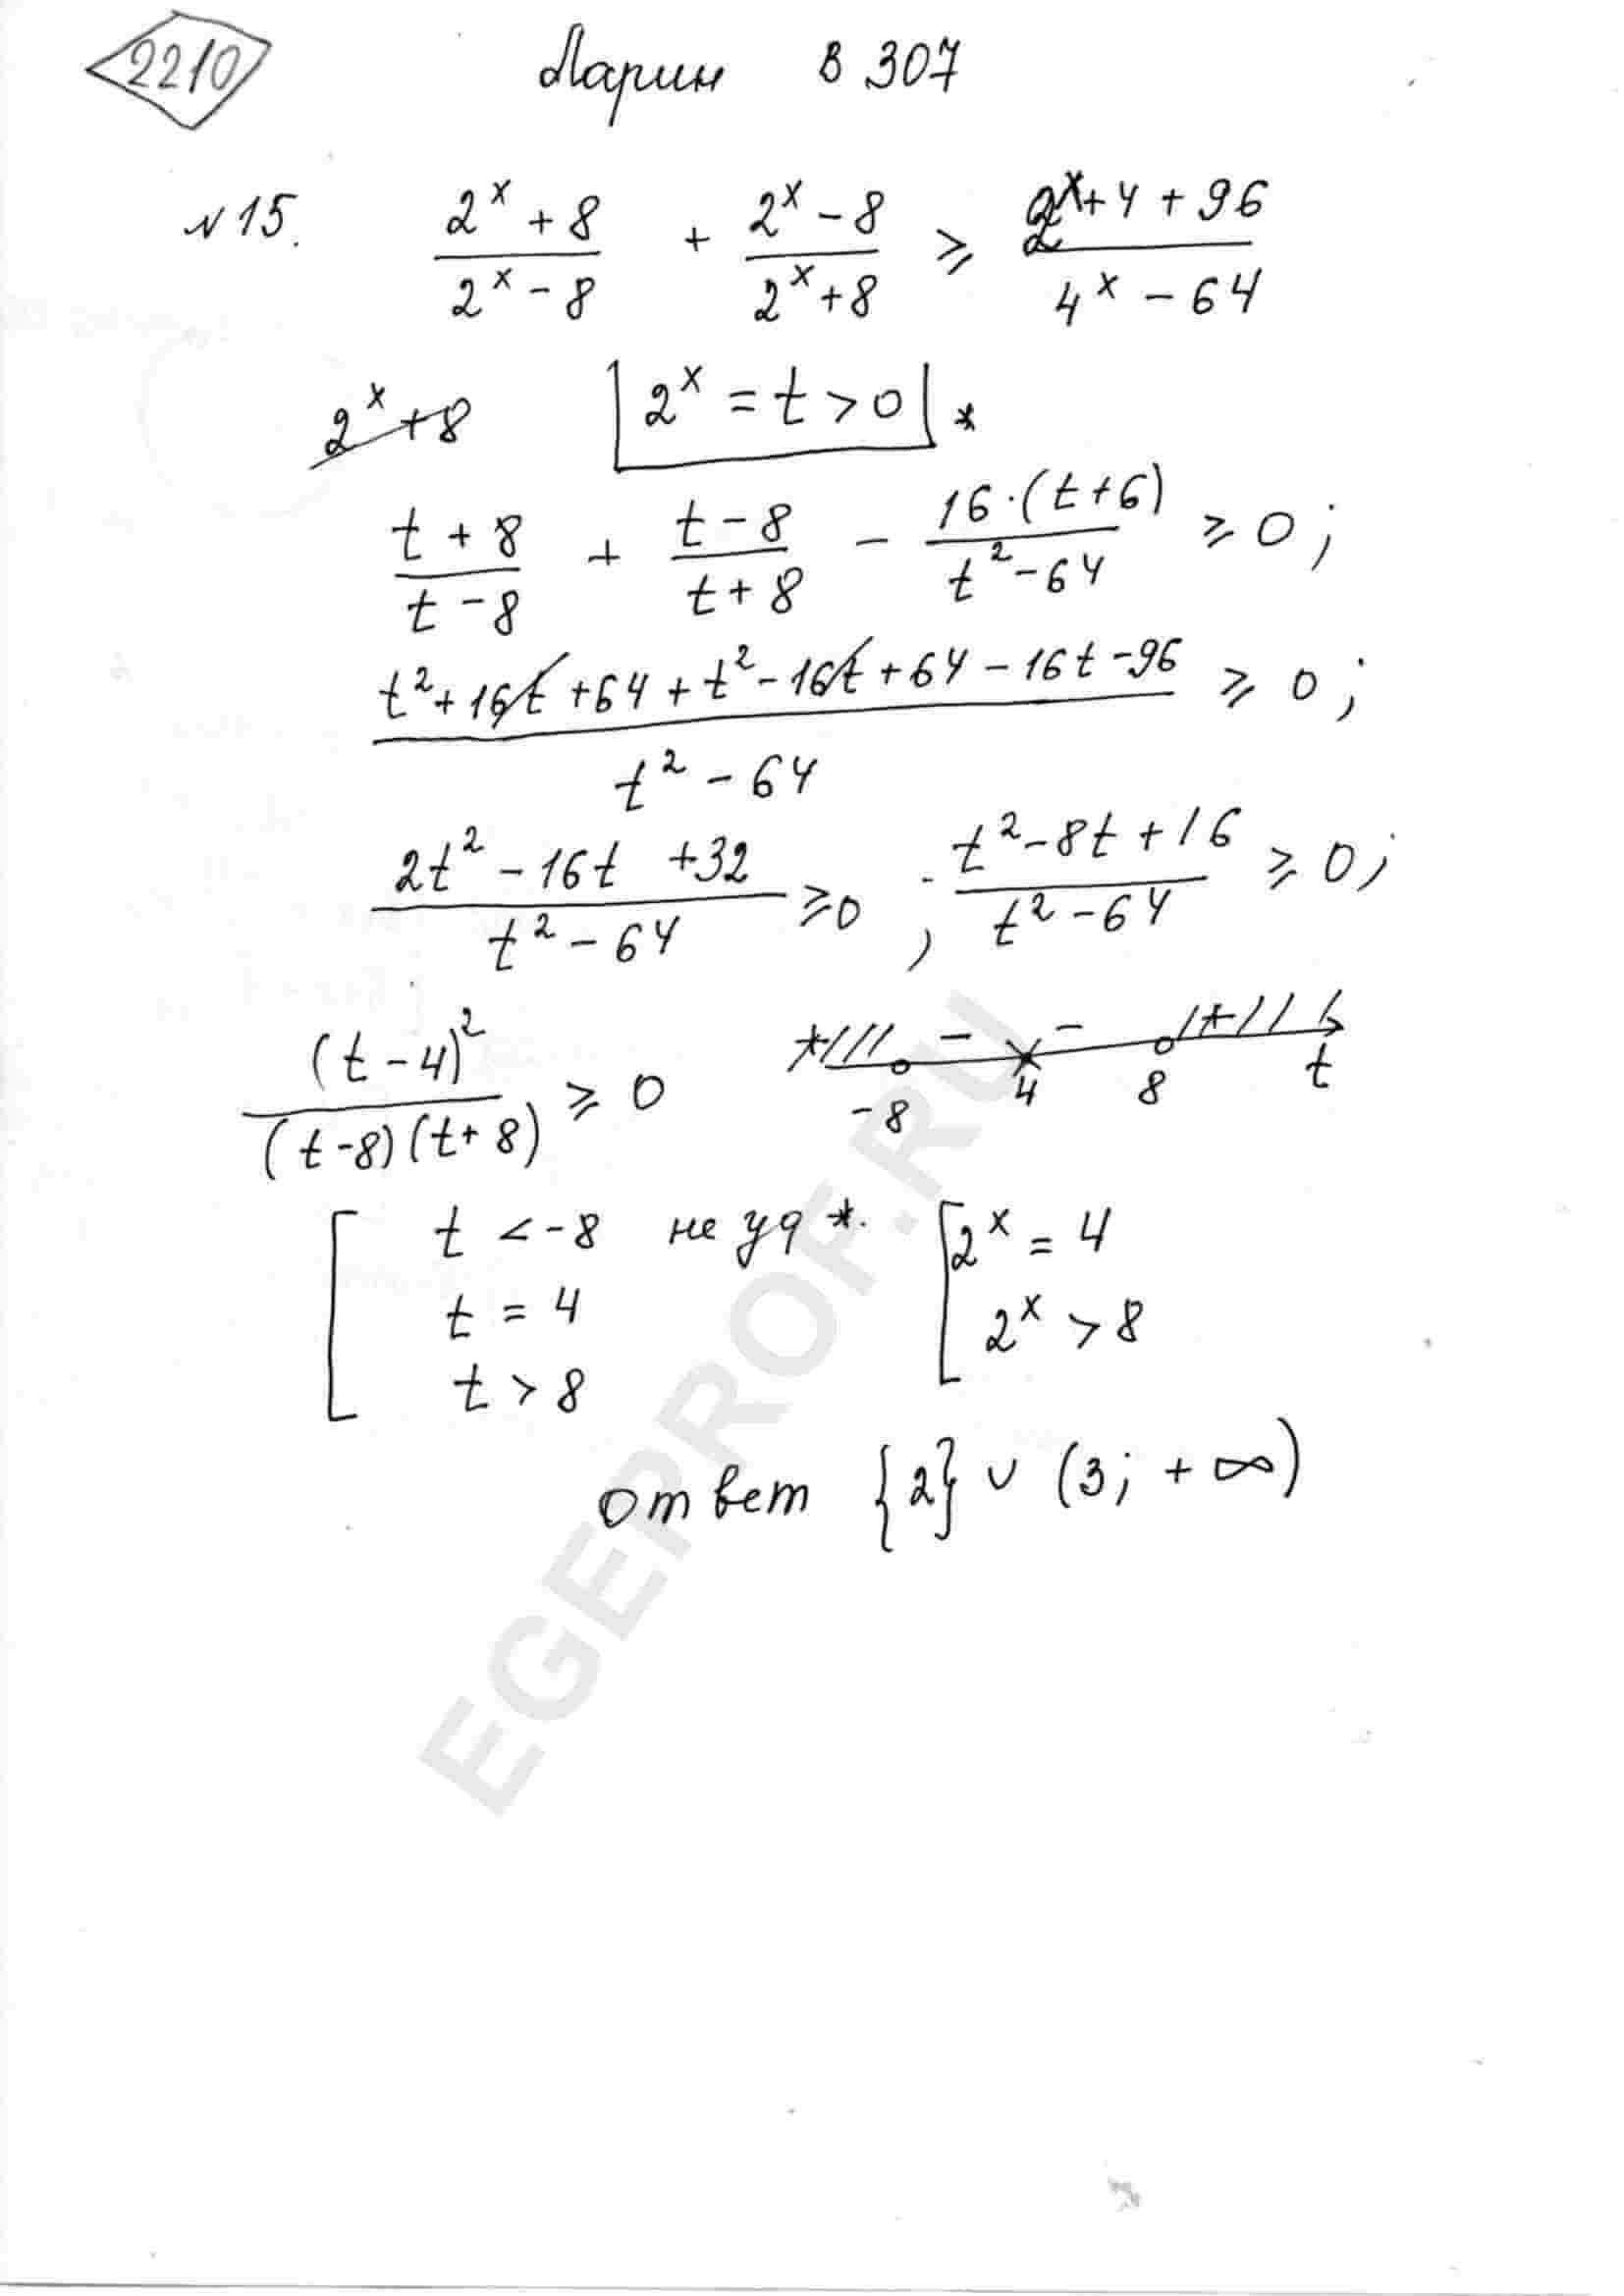 2210
Ларин в 307
№15. (2^x + 8)/(2^x - 8) + (2^x - 8)/(2^x + 8) ⩾ (2^(x+4) + 96)/(4^x - 64)
2^x + 8 |2^x = t > 0| *
(t + 8)/(t - 8) + (t - 8)/(t + 8) - (16·(t+6))/(t^2 - 64) ⩾ 0 ;
(t^2 + 16t + 64 + t^2 - 16t + 64 - 16t - 96)/(t^2 - 64) ⩾ 0 ;
(2t^2 - 16t + 32)/(t^2 - 64) ⩾ 0 ; (t^2 - 8t + 16)/(t^2 - 64) ⩾ 0 ;
(t - 4)^2/((t - 8)(t + 8)) ⩾ 0 + - - +
-8 4 8 t
t < -8 не уд *. 2^x = 4
t = 4 2^x > 8
t > 8
ответ {2} ∪ (3; +∞)
EGEPROF.RU